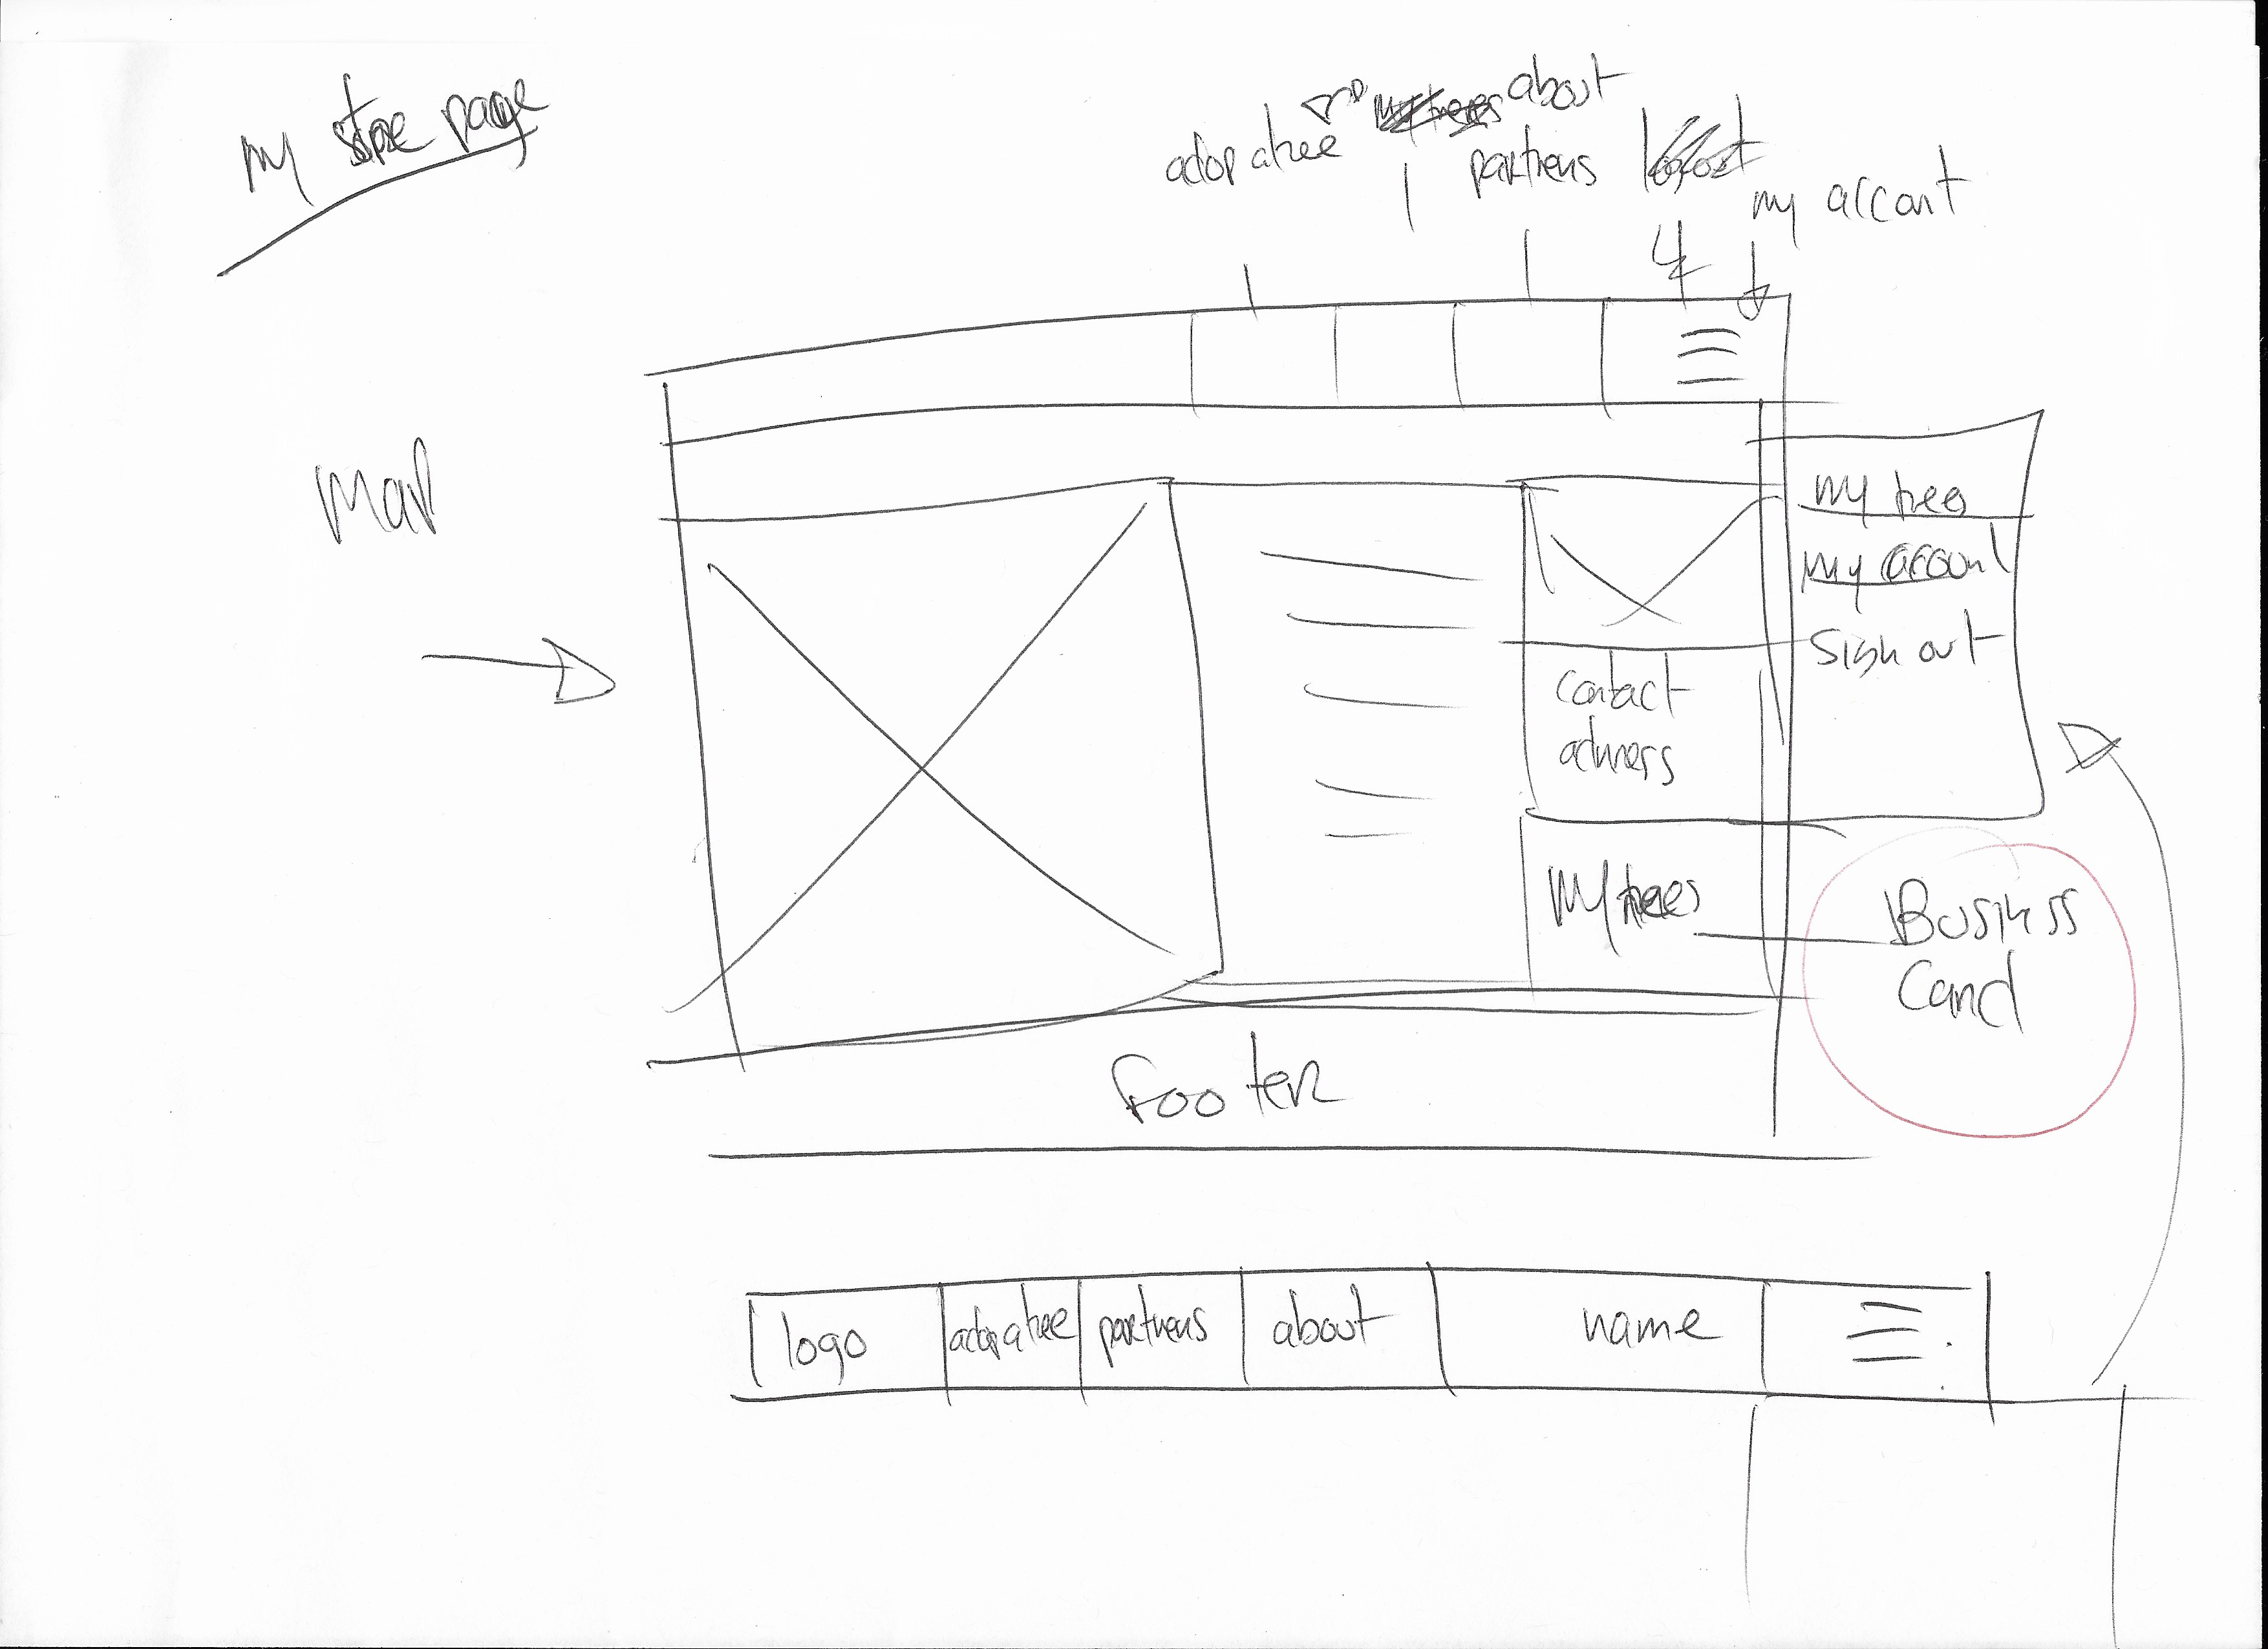 my store page
about
adop a tree
partners
my account
map
my trees
my account
Sign out
contact
adrress
My trees
Business
Card
Footer
logo
adop a tree
partners
about
name